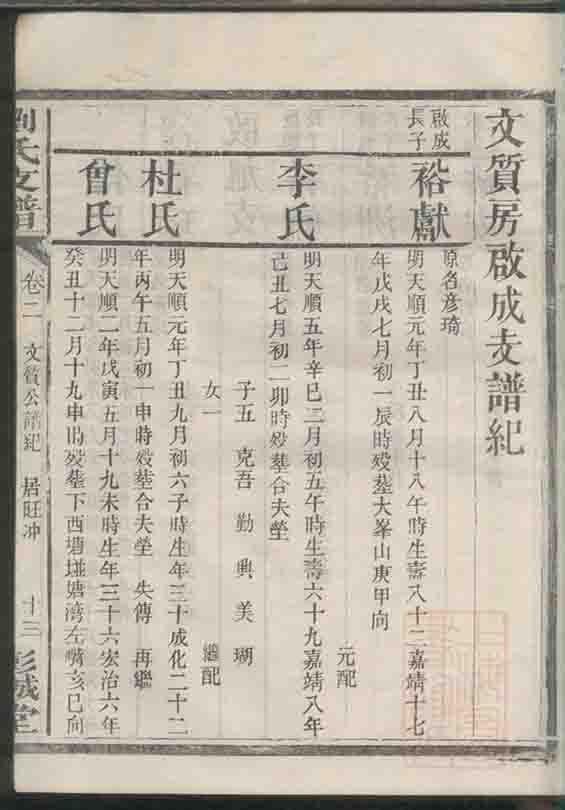 文質房啟成支譜紀
啟成
長子
裕獻
原名彥琦
明天順元年丁丑八月十八午時生壽八十二嘉靖十七
年戊戌七月初一辰時殁塟大峯山庚甲向
元配
李氏
明天順五年辛巳二月初五午時生壽六十九嘉靖八年
己丑七月初二卯時殁塟合夫塋
子五 克吾 勤 興 美 瑚
女一
繼配
杜氏
明天順元年丁丑九月初六子時生年三十成化二十二
年丙午五月初一申時殁塟合夫塋 失傳 再繼
曾氏
明天順二年戊寅五月十九未時生年三十六宏治六年
癸丑十二月十九申時殁塟下西塘墶塘湾左嘴亥巳向
劉氏支譜
卷二
文質公譜紀
居旺冲
十三
彭城堂